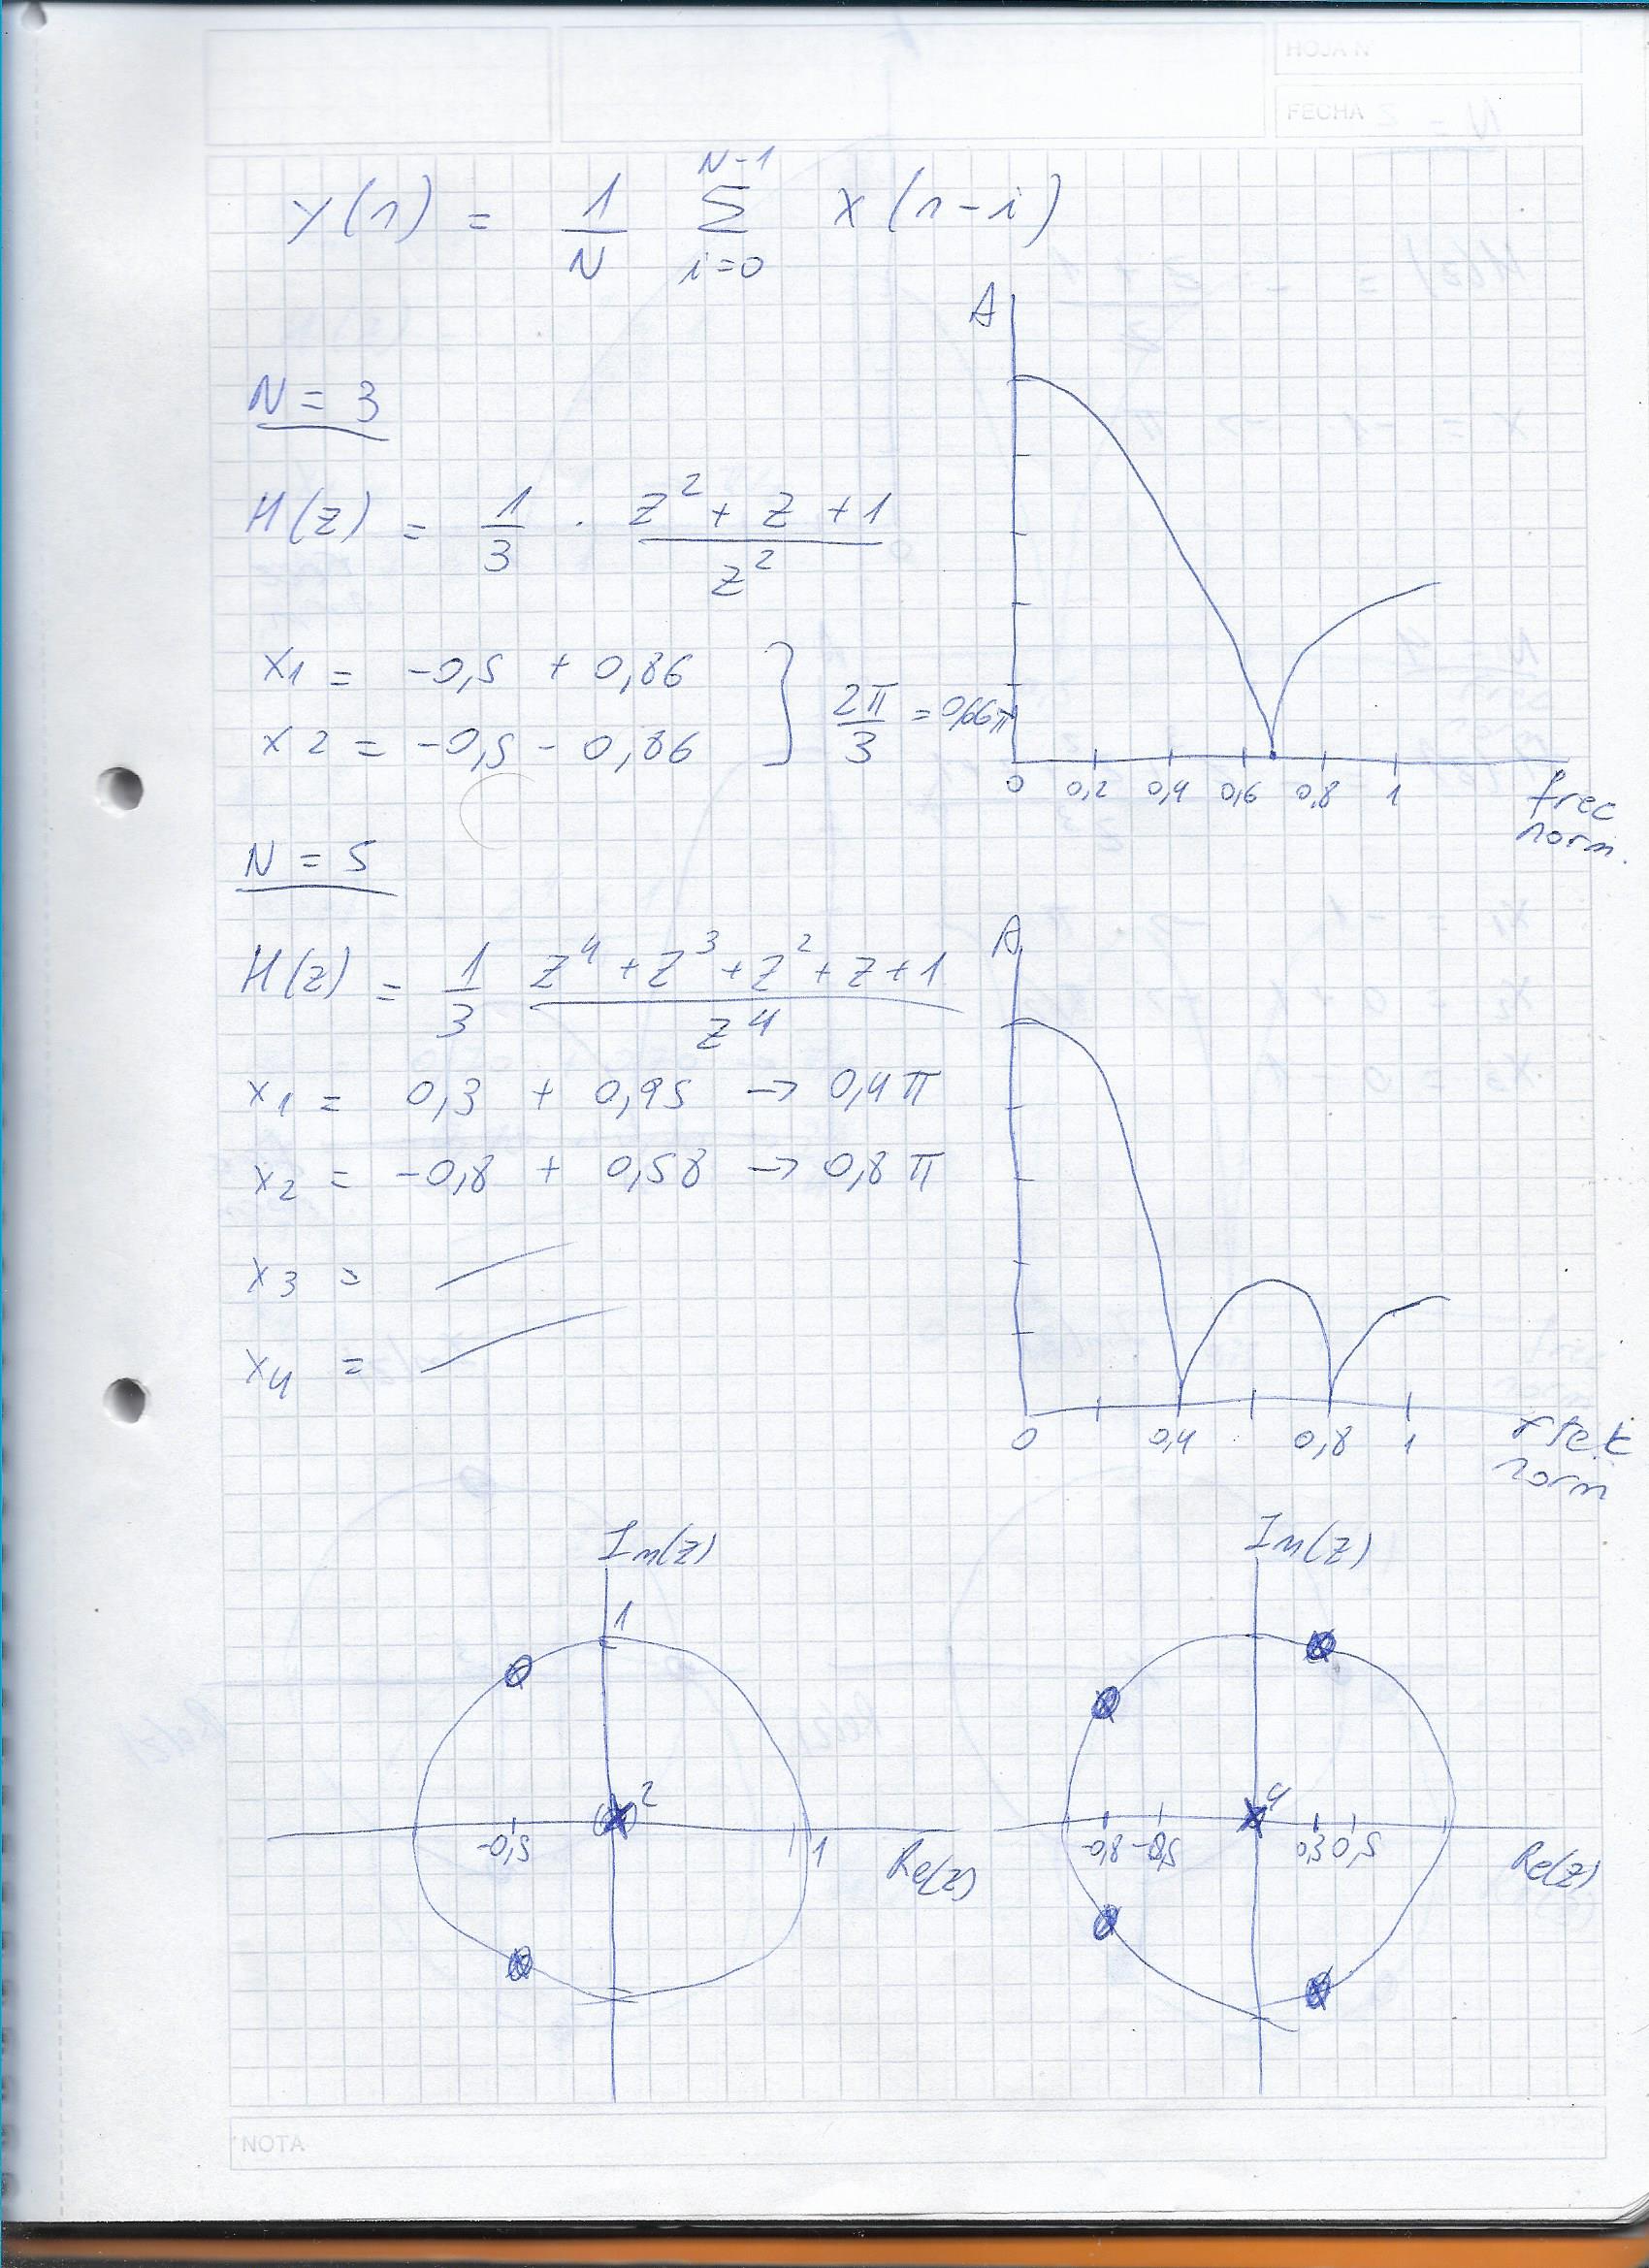 HOJA N
FECHA
y(n) = 1/N Σ_{i=0}^{N-1} x(n-i)
N = 3
H(z) = 1/3 · (z² + z + 1)/z²
x1 = -0,5 + 0,86
x2 = -0,5 - 0,86
} 2π/3 = 0,66π
A
0 0,2 0,4 0,6 0,8 1
frec
norm.
N = 5
H(z) = 1/3 (z⁴ + z³ + z² + z + 1)/z⁴
x1 = 0,3 + 0,95 → 0,4π
x2 = -0,8 + 0,58 → 0,8π
x3 =
x4 =
A
0 0,4 0,8 1
norm
Im(z)
1
2
-0,5
1
Re(z)
Im(z)
4
-0,8 -0,5 0,3 0,5
Re(z)
NOTA